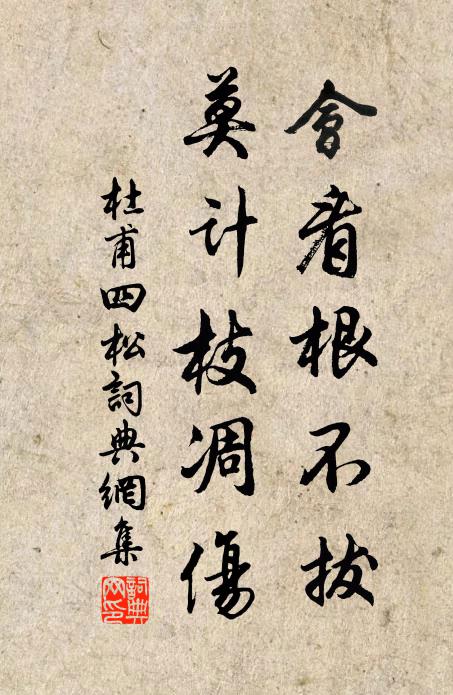 會看根不拔
莫计枝凋傷
杜甫四松詞典網集
詞典网印